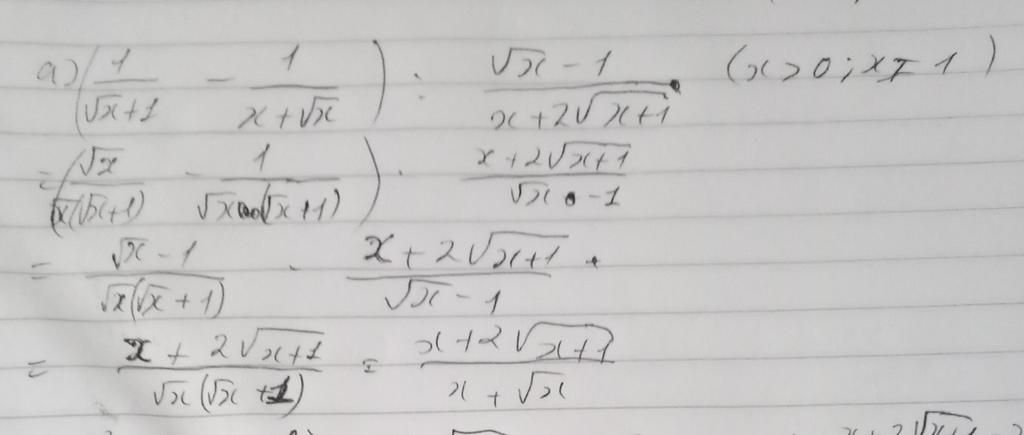 a) (1/(√x+1) - 1/(x+√x)) : (√x-1)/(x+2√(x+1)) (x>0; x≠1)
= (√x/(√x(√x+1)) - 1/(√x(√x+1))) · (x+2√(x+1))/(√x-1)
= (√x-1)/(√x(√x+1)) · (x+2√(x+1))/(√x-1)
= (x+2√(x+1))/(√x(√x+1)) = (x+2√(x+1))/(x+√x)